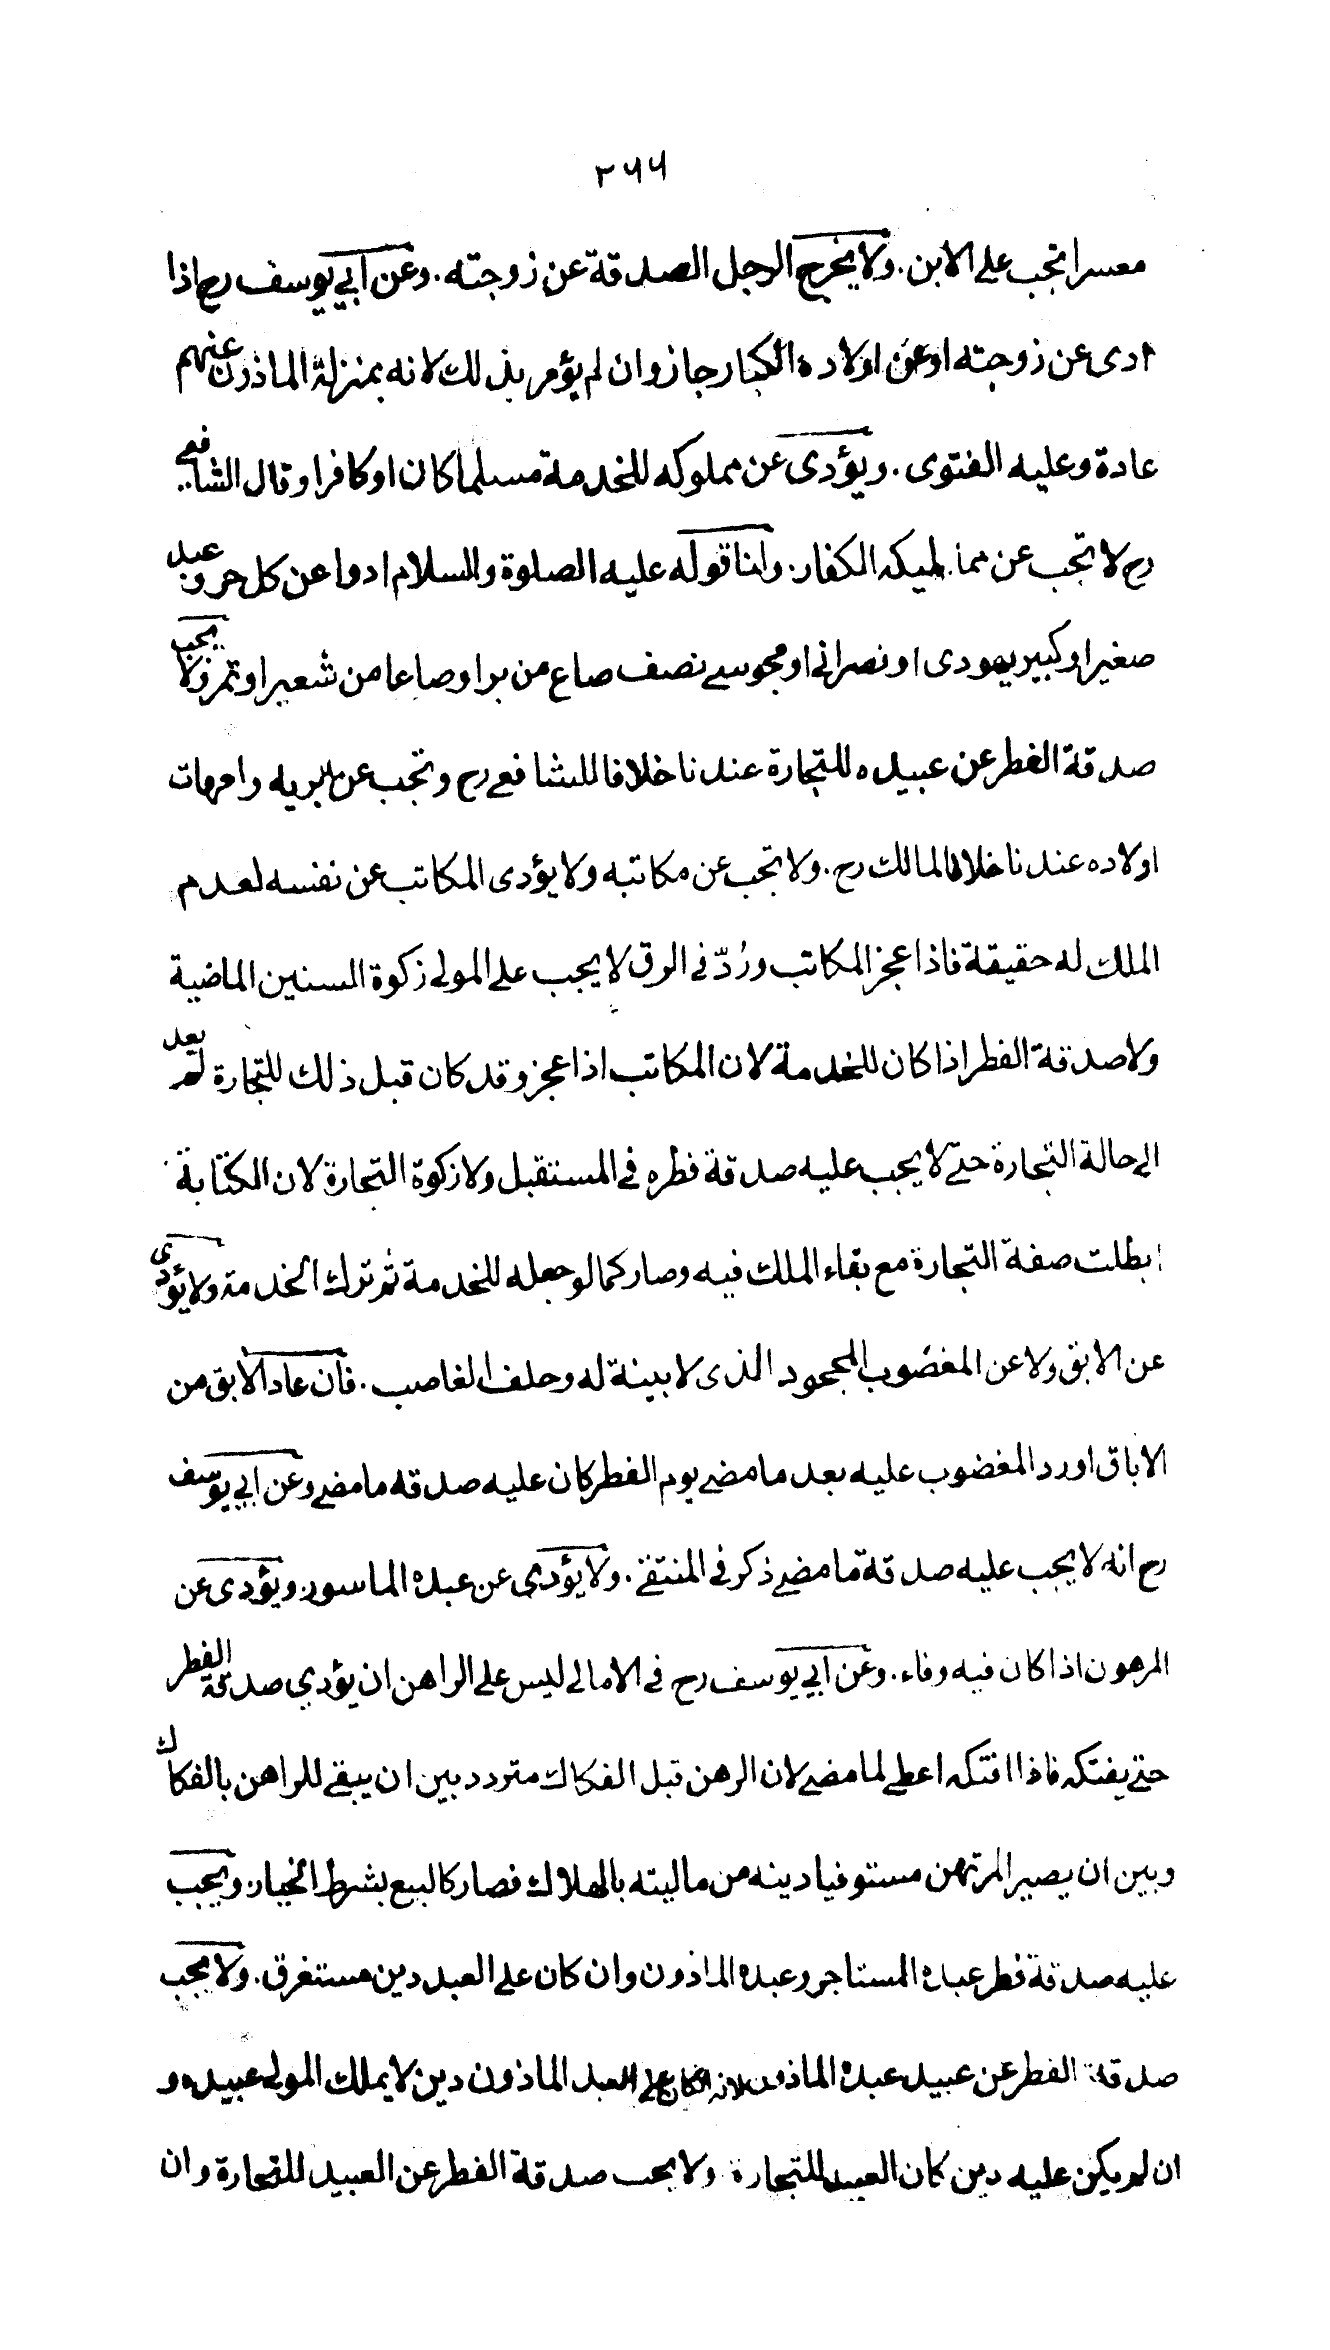 ٢٦٦
معسرا تجب على الابن. ولا يخرج الرجل الصدقة عن زوجته. وعن ابي يوسف رح اذا
ادى عن زوجته او عن اولاده الكبار جاز وان لم يؤمر بذلك لانه بمنزلة الماذون عنهم
عادة وعليه الفتوى. ويؤدى عن مملوكه للخدمة مسلما كان او كافرا وقال الشافعي
رح لا تجب عن مماليكه الكفار. ولنا قوله عليه الصلوة والسلام ادوا عن كل حر وعبد
صغير او كبير يهودى او نصراني او مجوسي نصف صاع من بر او صاعا من شعير او تمر ولا يجب
صدقة الفطر عن عبيده للتجارة عندنا خلافا للشافعي رح وتجب عن مدبريه وامهات
اولاده عندنا خلافا لمالك رح. ولا تجب عن مكاتبه ولا يؤدى المكاتب عن نفسه لعدم
الملك له حقيقة فاذا عجز المكاتب وردّ في الرق لا يجب على المولى زكوة السنين الماضية
ولا صدقة الفطر اذا كان للخدمة لان المكاتب اذا عجز وقد كان قبل ذلك للتجارة لم يعد
الى حالة التجارة حتى لا يجب عليه صدقة فطره في المستقبل ولا زكوة التجارة لان الكتابة
ابطلت صفة التجارة مع بقاء الملك فيه وصار كما لو جعله للخدمة ثم ترك الخدمة ولا يؤدى
عن الابق ولا عن المغضوب المجحود الذى لا بينة له وحلف الغاصب. فان عاد الابق من
الاباق او رد المغضوب عليه بعد ما مضى يوم الفطر كان عليه صدقة ما مضى وعن ابي يوسف
رح انه لا يجب عليه صدقة ما مضى ذكر في المنتقى. ولا يؤدى عن عبده الماسور. ويؤدى عن
المرهون اذا كان فيه وفاء. وعن ابي يوسف رح في الامالي ليس على الراهن ان يؤدي صدقة الفطر
حتى يفتكه فاذا افتكه اعطى لما مضى لان الرهن قبل الفكاك متردد بين ان يبقى للراهن بالفكاك
وبين ان يصير المرتهن مستوفيا دينه من ماليته بالهلاك فصار كالبيع بشرط الخيار. ويجب
عليه صدقة فطر عبده المستاجر وعبده الماذون وان كان على العبد دين مستغرق. ولا يجب
صدقة الفطر عن عبيد عبده الماذون لانه ان كان على العبد الماذون دين لا يملك المولى عبيده و
ان لم يكن عليه دين كان العبيد للتجارة ولا يجب صدقة الفطر عن العبيد للتجارة وان